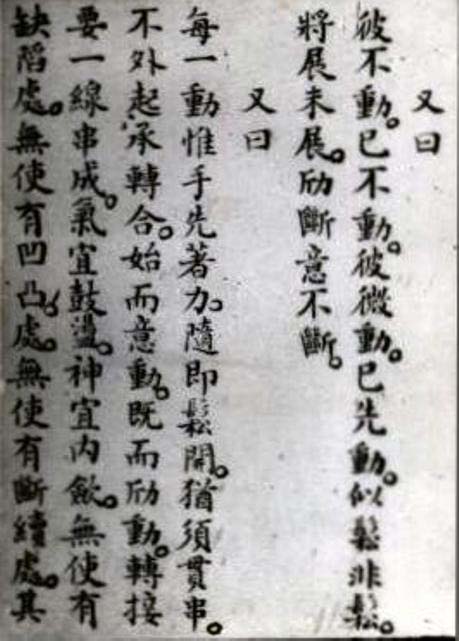 又曰
彼不動。已不動。彼微動。已先動。似鬆非鬆。
將展未展。劤斷意不斷。
又曰
每一動惟手先著力。隨即鬆開。猶須貫串。
不外起承轉合。始而意動。既而劤動。轉接
要一線串成。氣宜鼓盪。神宜内歛。無使有
缺陷處。無使有凹凸處。無使有斷續處。其